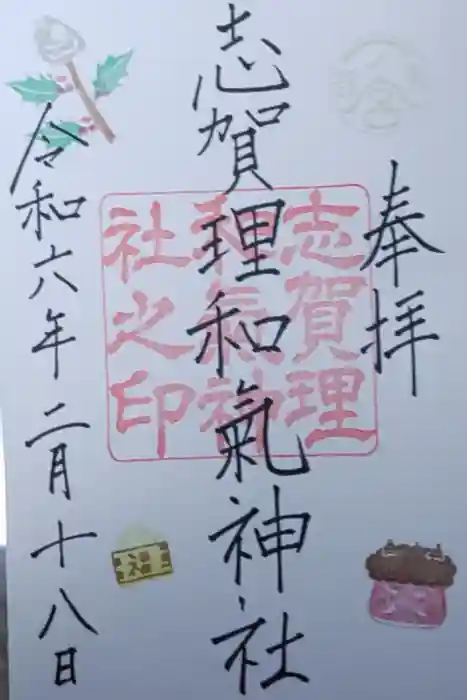 奉拝
志賀理和氣神社
志賀理
和氣神
社之印
令和六年二月十八日
福